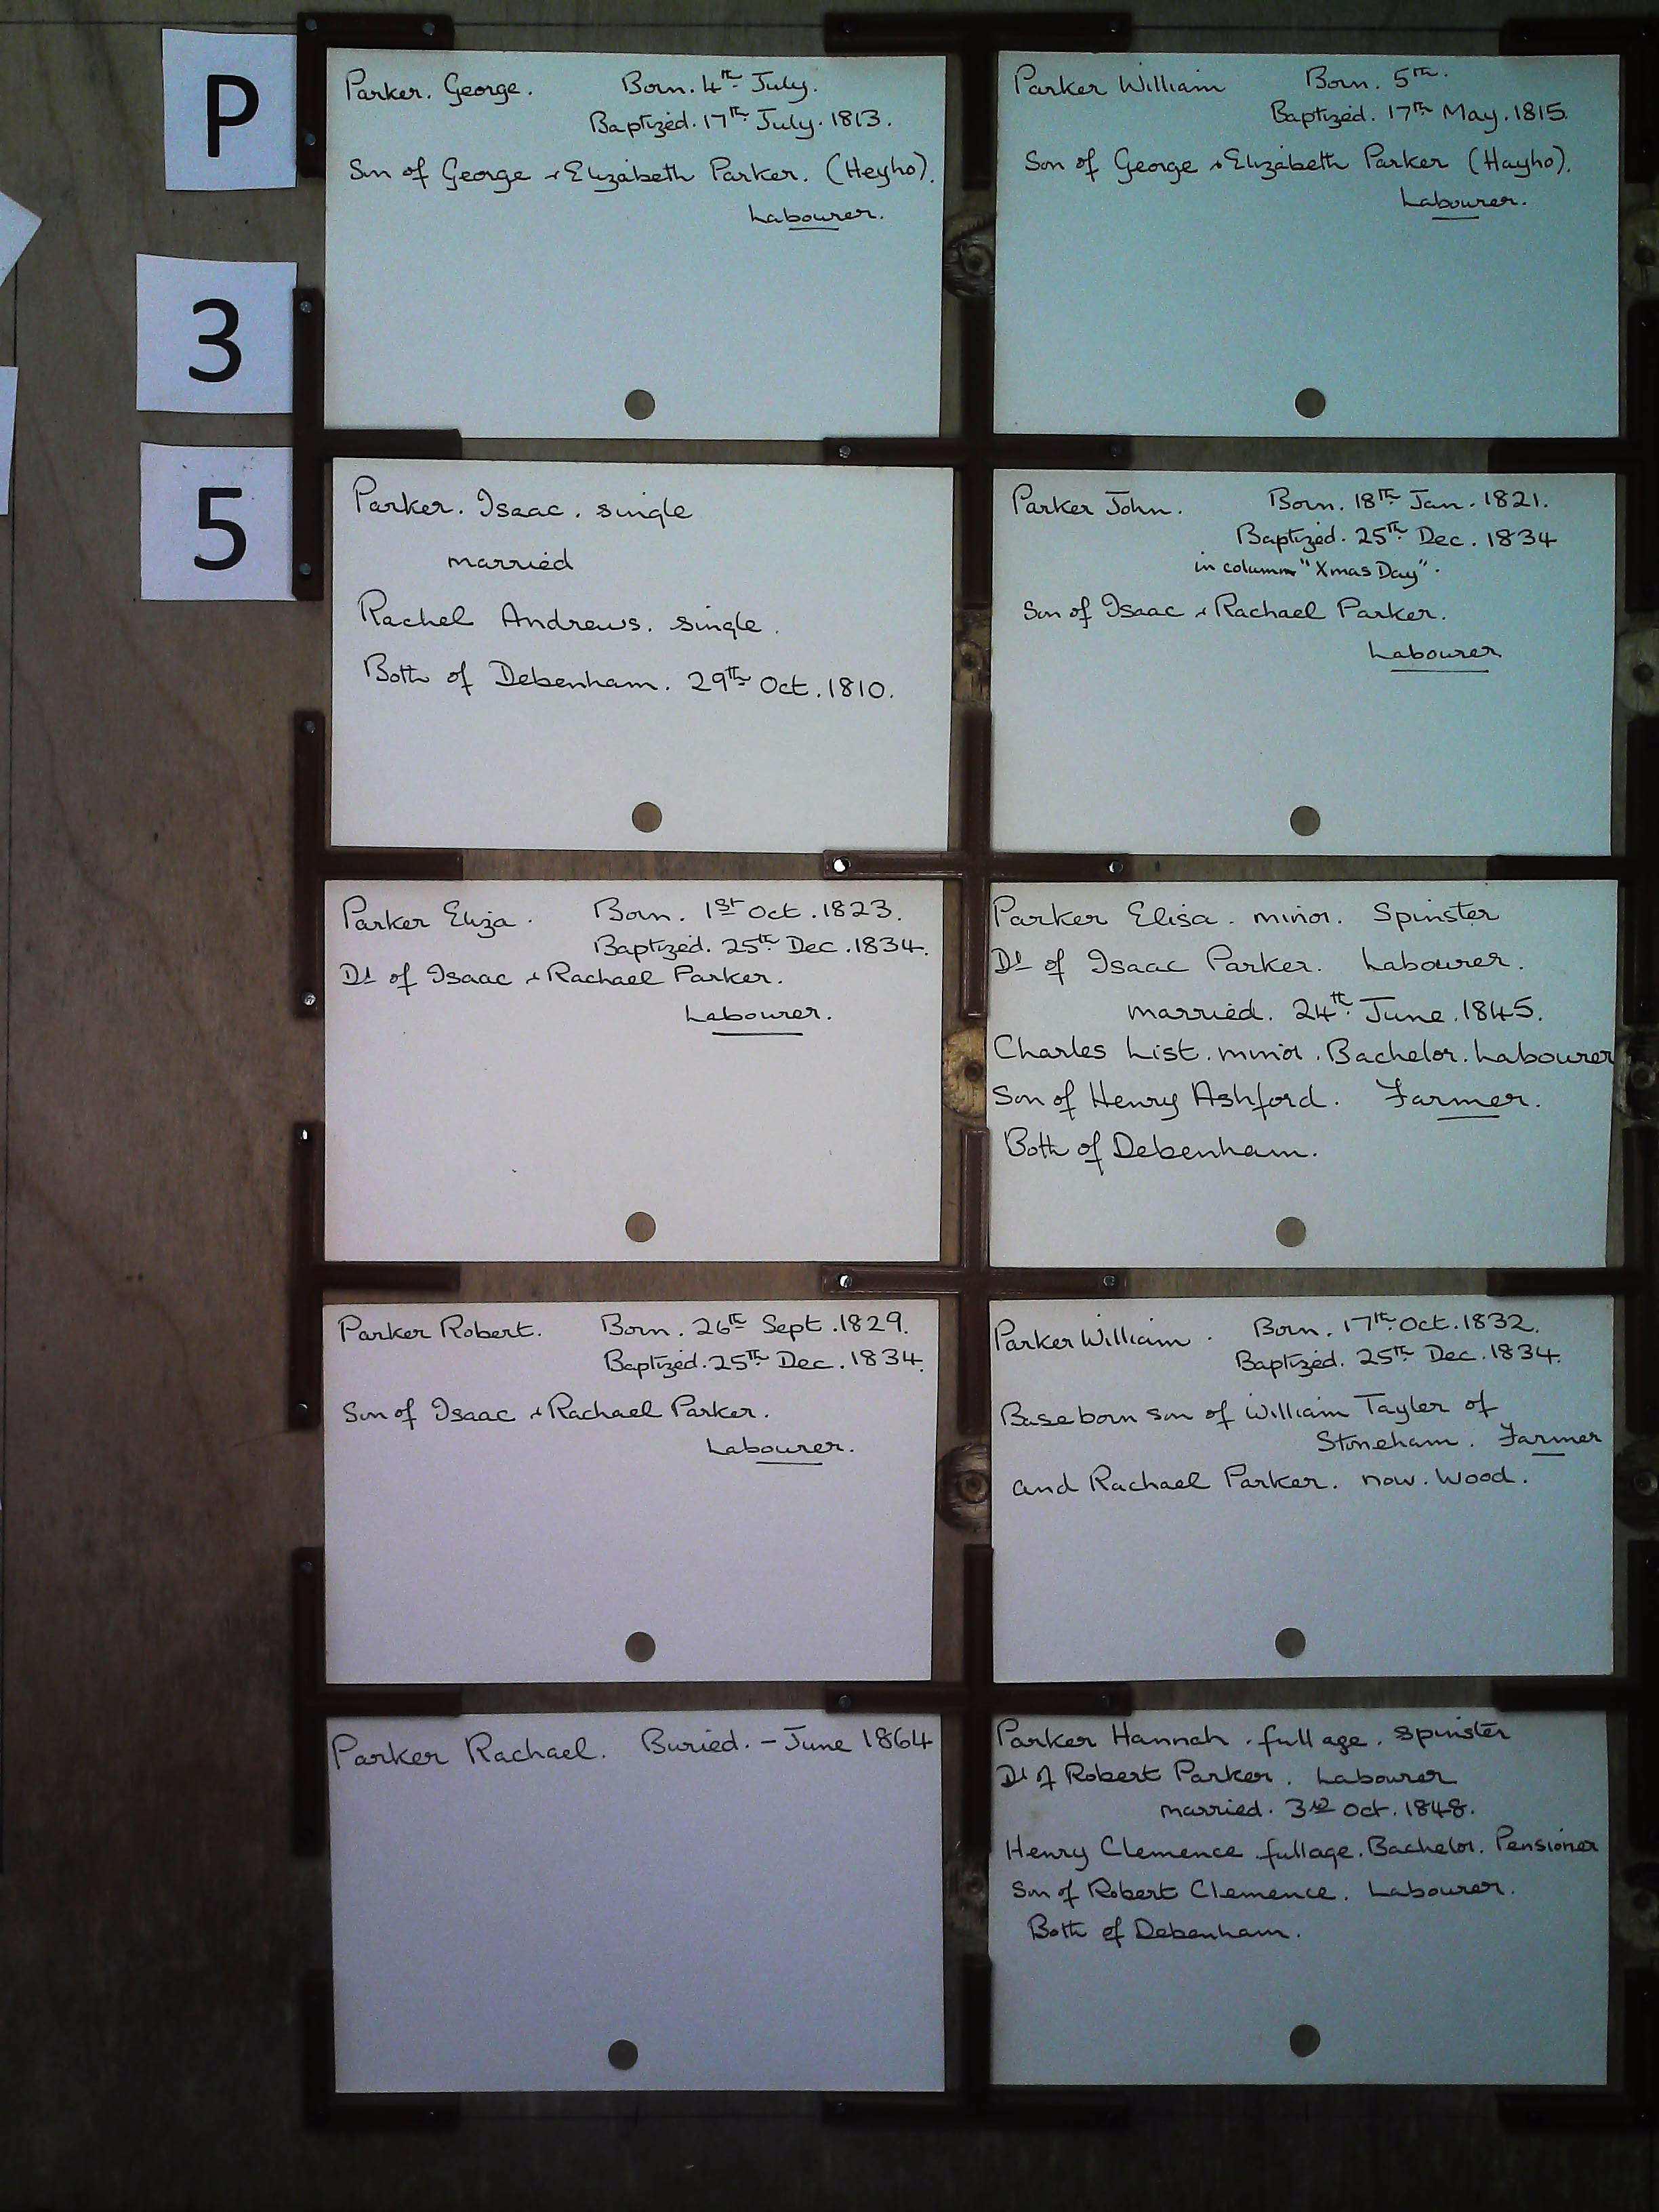 P
3
5
Parker. George. Born. 4th July.
Baptized. 17th July. 1813.
Son of George & Elizabeth Parker. (Heyho).
Labourer.
Parker William Born. 5th.
Baptized. 17th May. 1815.
Son of George & Elizabeth Parker (Hayho).
Labourer.
Parker. Isaac. single
married
Rachel Andrews. single.
Both of Debenham. 29th Oct. 1810.
Parker John. Born. 18th Jan. 1821.
Baptized. 25th Dec. 1834
in column "Xmas Day".
Son of Isaac & Rachael Parker.
Labourer
Parker Eliza. Born. 1st Oct. 1823.
Baptized. 25th Dec. 1834.
Dt of Isaac & Rachael Parker.
Labourer.
Parker Elisa. minor. Spinster
Dt of Isaac Parker. Labourer.
married. 24th June. 1845.
Charles List. minor. Bachelor. Labourer
Son of Henry Ashford. Farmer.
Both of Debenham.
Parker Robert. Born. 26th Sept. 1829.
Baptized. 25th Dec. 1834.
Son of Isaac & Rachael Parker.
Labourer.
Parker William. Born. 17th Oct. 1832.
Baptized. 25th Dec. 1834.
Base born son of William Tayler of
Stoneham. Farmer
and Rachael Parker. now. Wood.
Parker Rachael. Buried. - June 1864
Parker Hannah. full age. spinster
Dt of Robert Parker. Labourer
married. 3rd Oct. 1848.
Henry Clemence full age. Bachelor. Pensioner
Son of Robert Clemence. Labourer.
Both of Debenham.